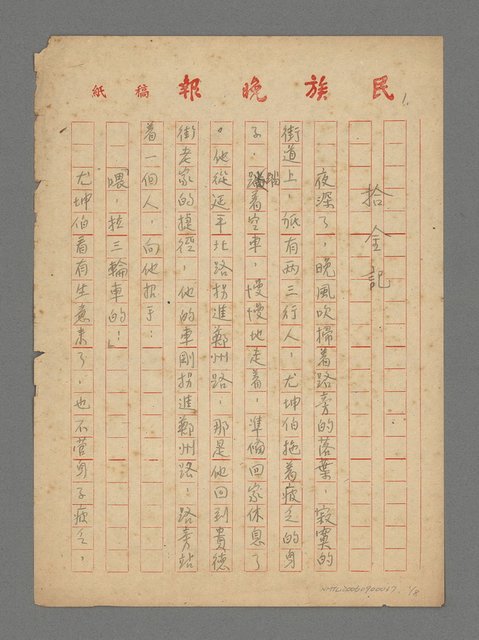 民族晚報稿紙
1.
拾金記
夜深了，晚風吹掃着路旁的落葉，寂寞的
街道上，祇有两三行人，尤坤伯拖着疲乏的身
子，踏着空車，慢慢地走着，準備回家休息了
。他從延平北路拐進鄭州路，那是他回到貴德
街老家的捷徑，他的車剛拐進鄭州路，路旁站
着一個人，向他招手：
「喂，拉三輪車的！」
尤坤伯看有生意來了，也不管身子疲乏，
NMTL20060900017 1/8